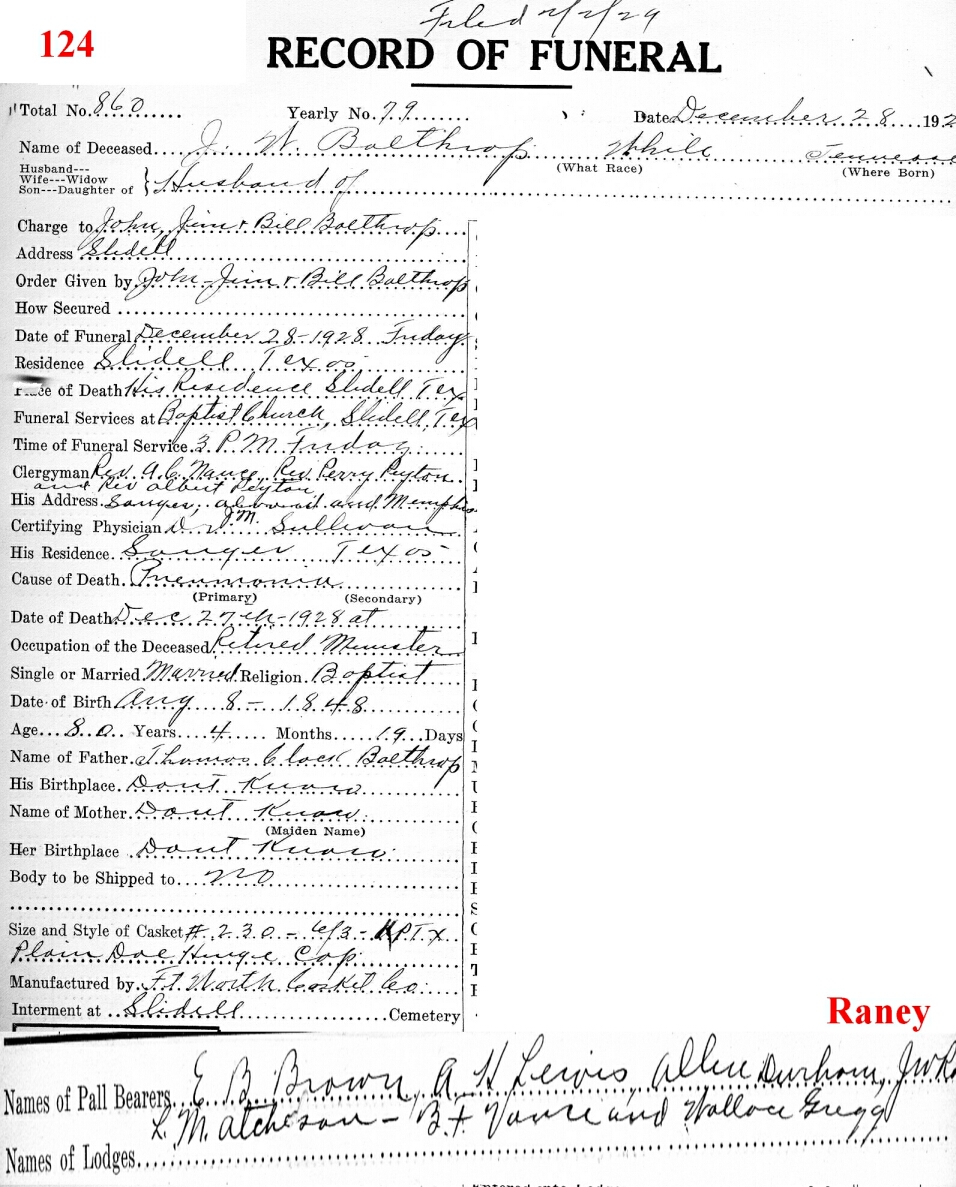 Filed 2/2/29
124
RECORD OF FUNERAL
Total No. 860 Yearly No. 79 Date December 28 192
Name of Deceased J. W. Bolthrop White Tennessee
(What Race) (Where Born)
Husband---
Wife---Widow
Son---Daughter of } Husband of
Charge to John, Jim & Bill Boelthrop
Address Slidell
Order Given by John - Jim & Bill Boelthrop
How Secured
Date of Funeral December 28-1928 Friday
Residence Slidell Texas
Place of Death His Residence Slidell Tex
Funeral Services at Baptist Church, Slidell, Tex
Time of Funeral Service 3 P.M. Friday
Clergyman Rev. A. C. Nance, Rev Perry Peyton
and Rev Albert Peyton
His Address Sanger, and Memphis
Certifying Physician Dr J.M. Sullivan
His Residence Sanger Texas
Cause of Death Pneumonia
(Primary) (Secondary)
Date of Death Dec. 27th-1928 at
Occupation of the Deceased Retired Minister
Single or Married Married Religion Baptist
Date of Birth Aug 8 - 1848
Age 80 Years 4 Months 19 Days
Name of Father Thomas Boelthrop
His Birthplace Dont Know
Name of Mother Dont Know
(Maiden Name)
Her Birthplace Dont Know
Body to be Shipped to no
Size and Style of Casket # 230 - 6/3 -
Plain Hinge Cap
Manufactured by Ft Worth Casket Co.
Interment at Slidell Cemetery
Raney
Names of Pall Bearers E B Brown, A H Lewis, Allen Durham, J W
L. M. Atcheson - B. F. Vance and Wallace Gregg
Names of Lodges